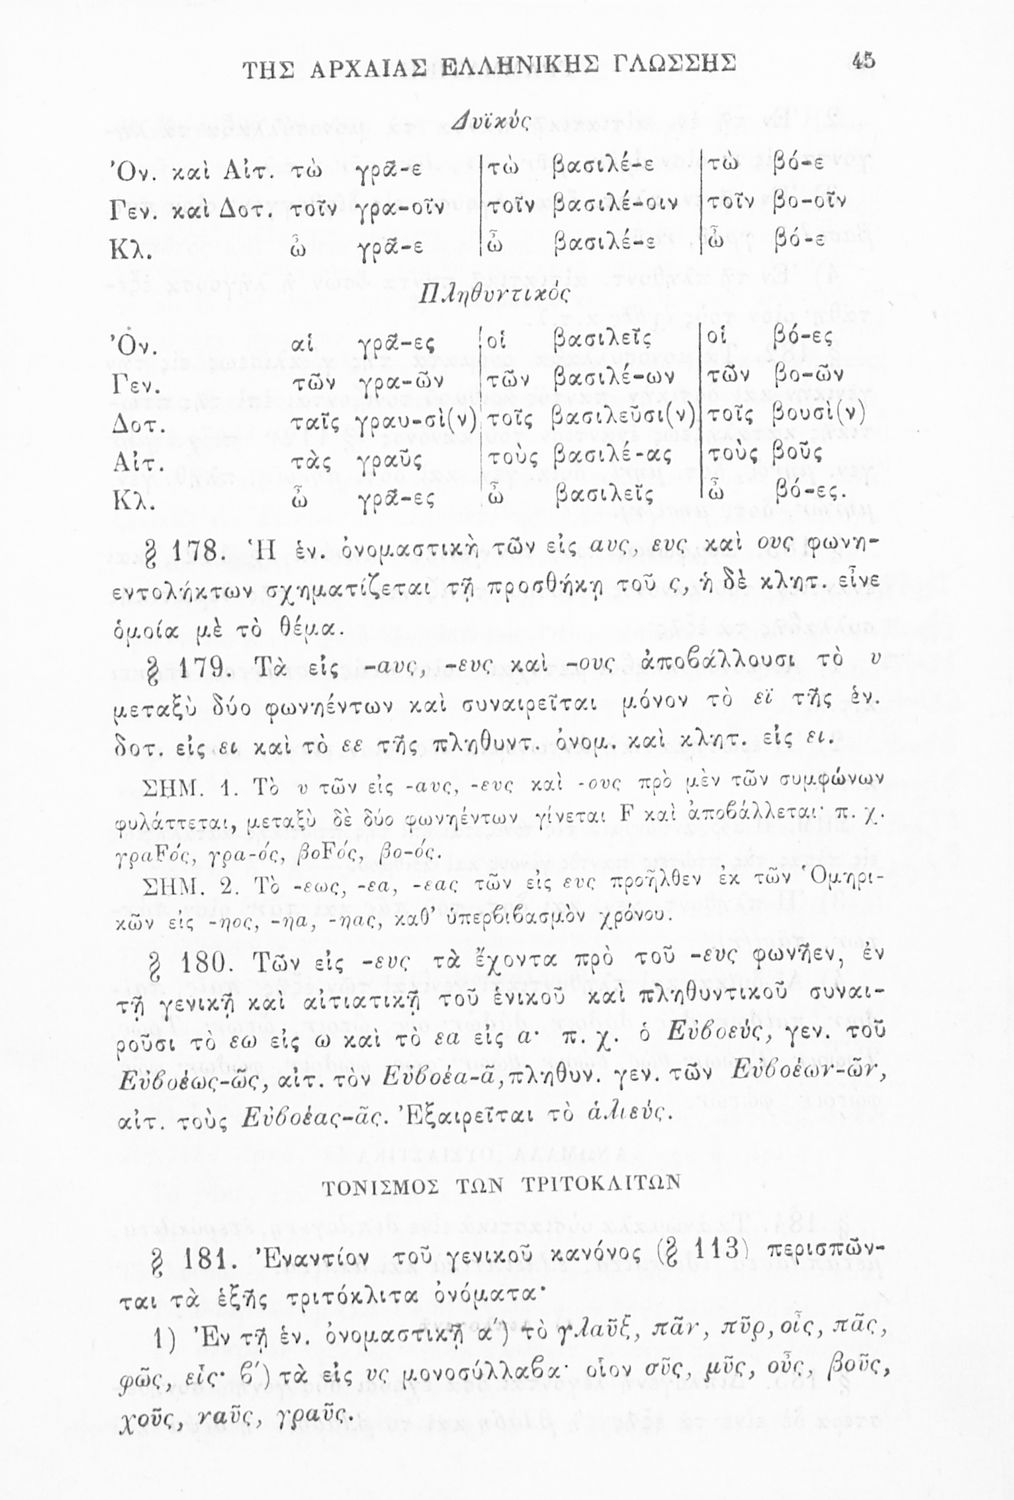 ΤΗΣ ΑΡΧΑΙΑΣ ΕΛΛΗΝΙΚΗΣ ΓΛΩΣΣΗΣ 45
Δυϊκός
Ὀν. καὶ Αἰτ. τὼ γρᾶ-ε τὼ βασιλέ-ε τὼ βό-ε
Γεν. καὶ Δοτ. τοῖν γρα-οῖν τοῖν βασιλέ-οιν τοῖν βο-οῖν
Κλ. ὦ γρᾶ-ε ὦ βασιλέ-ε ὦ βό-ε
Πληθυντικός
Ὀν. αἱ γρᾶ-ες οἱ βασιλεῖς οἱ βό-ες
Γεν. τῶν γρα-ῶν τῶν βασιλέ-ων τῶν βο-ῶν
Δοτ. ταῖς γραυ-σὶ(ν) τοῖς βασιλεῦσι(ν) τοῖς βουσὶ(ν)
Αἰτ. τὰς γραῦς τοὺς βασιλέ-ας τοὺς βοῦς
Κλ. ὦ γρᾶ-ες ὦ βασιλεῖς ὦ βό-ες.
§ 178. Ἡ ἑν. ὀνομαστικὴ τῶν εἰς αυς, ευς καὶ ους φωνη-
εντολήκτων σχηματίζεται τῇ προσθήκῃ τοῦ ς, ἡ δὲ κλητ. εἶνε
ὁμοία μὲ τὸ θέμα.
§ 179. Τὰ εἰς -αυς, -ευς καὶ -ους ἀποβάλλουσι τὸ υ
μεταξὺ δύο φωνηέντων καὶ συναιρεῖται μόνον τὸ εϊ τῆς ἑν.
δοτ. εἰς ει καὶ τὸ εε τῆς πληθυντ. ὀνομ. καὶ κλητ. εἰς ει.
ΣΗΜ. 1. Τὸ υ τῶν εἰς -αυς, -ευς καὶ -ους πρὸ μὲν τῶν συμφώνων
φυλάττεται, μεταξὺ δὲ δύο φωνηέντων γίνεται F καὶ ἀποβάλλεται· π. χ.
γραFός, γρα-ός, βοFός, βο-ός.
ΣΗΜ. 2. Τὸ -εως, -εα, -εας τῶν εἰς ευς προῆλθεν ἐκ τῶν Ὁμηρι-
κῶν εἰς -ηος, -ηα, -ηας, καθ' ὑπερβιβασμὸν χρόνου.
§ 180. Τῶν εἰς -ευς τὰ ἔχοντα πρὸ τοῦ -ευς φωνῆεν, ἐν
τῇ γενικῇ καὶ αἰτιατικῇ τοῦ ἑνικοῦ καὶ πληθυντικοῦ συναι-
ροῦσι τὸ εω εἰς ω καὶ τὸ εα εἰς α· π. χ. ὁ Εὐβοεύς, γεν. τοῦ
Εὐβοέως-ῶς, αἰτ. τὸν Εὐβοέα-ᾶ, πληθυν. γεν. τῶν Εὐβοέων-ῶν,
αἰτ. τοὺς Εὐβοέας-ᾶς. Ἐξαιρεῖται τὸ ἁλιεύς.
ΤΟΝΙΣΜΟΣ ΤΩΝ ΤΡΙΤΟΚΛΙΤΩΝ
§ 181. Ἐναντίον τοῦ γενικοῦ κανόνος (§ 113) περισπῶν-
ται τὰ ἑξῆς τριτόκλιτα ὀνόματα·
1) Ἐν τῇ ἑν. ὀνομαστικῇ α') τὸ γλαῦξ, πᾶν, πῦρ, οἶς, πᾶς,
φῶς, εἷς· β') τὰ εἰς υς μονοσύλλαβα· οἷον σῦς, μῦς, οὖς, βοῦς,
χοῦς, ναῦς, γραῦς.